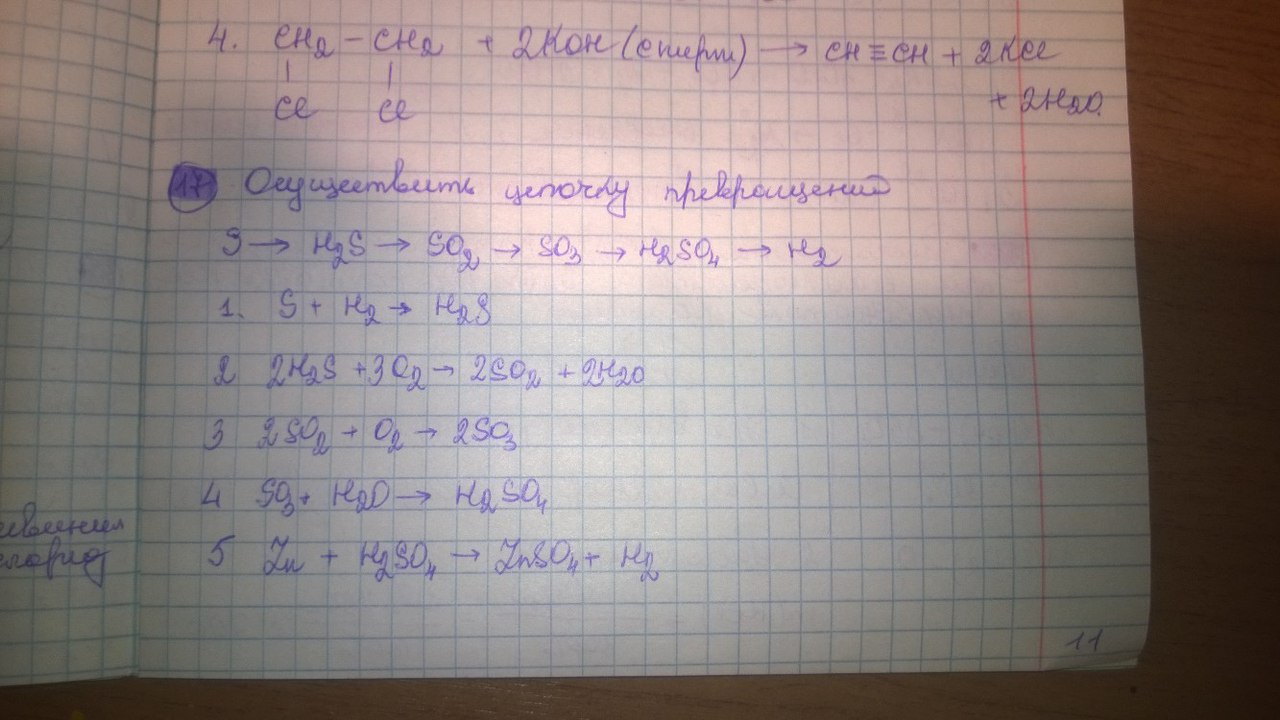 4. CH2 – CH2 + 2KOH (спирт) → CH ≡ CH + 2KCl
| |
Cl Cl + 2H2O.
17 Осуществить цепочку превращений
S → H2S → SO2 → SO3 → H2SO4 → H2
1. S + H2 → H2S
2 2H2S + 3O2 → 2SO2 + 2H2O
3 2SO2 + O2 → 2SO3
4 SO3 + H2O → H2SO4
5 Zn + H2SO4 → ZnSO4 + H2
11